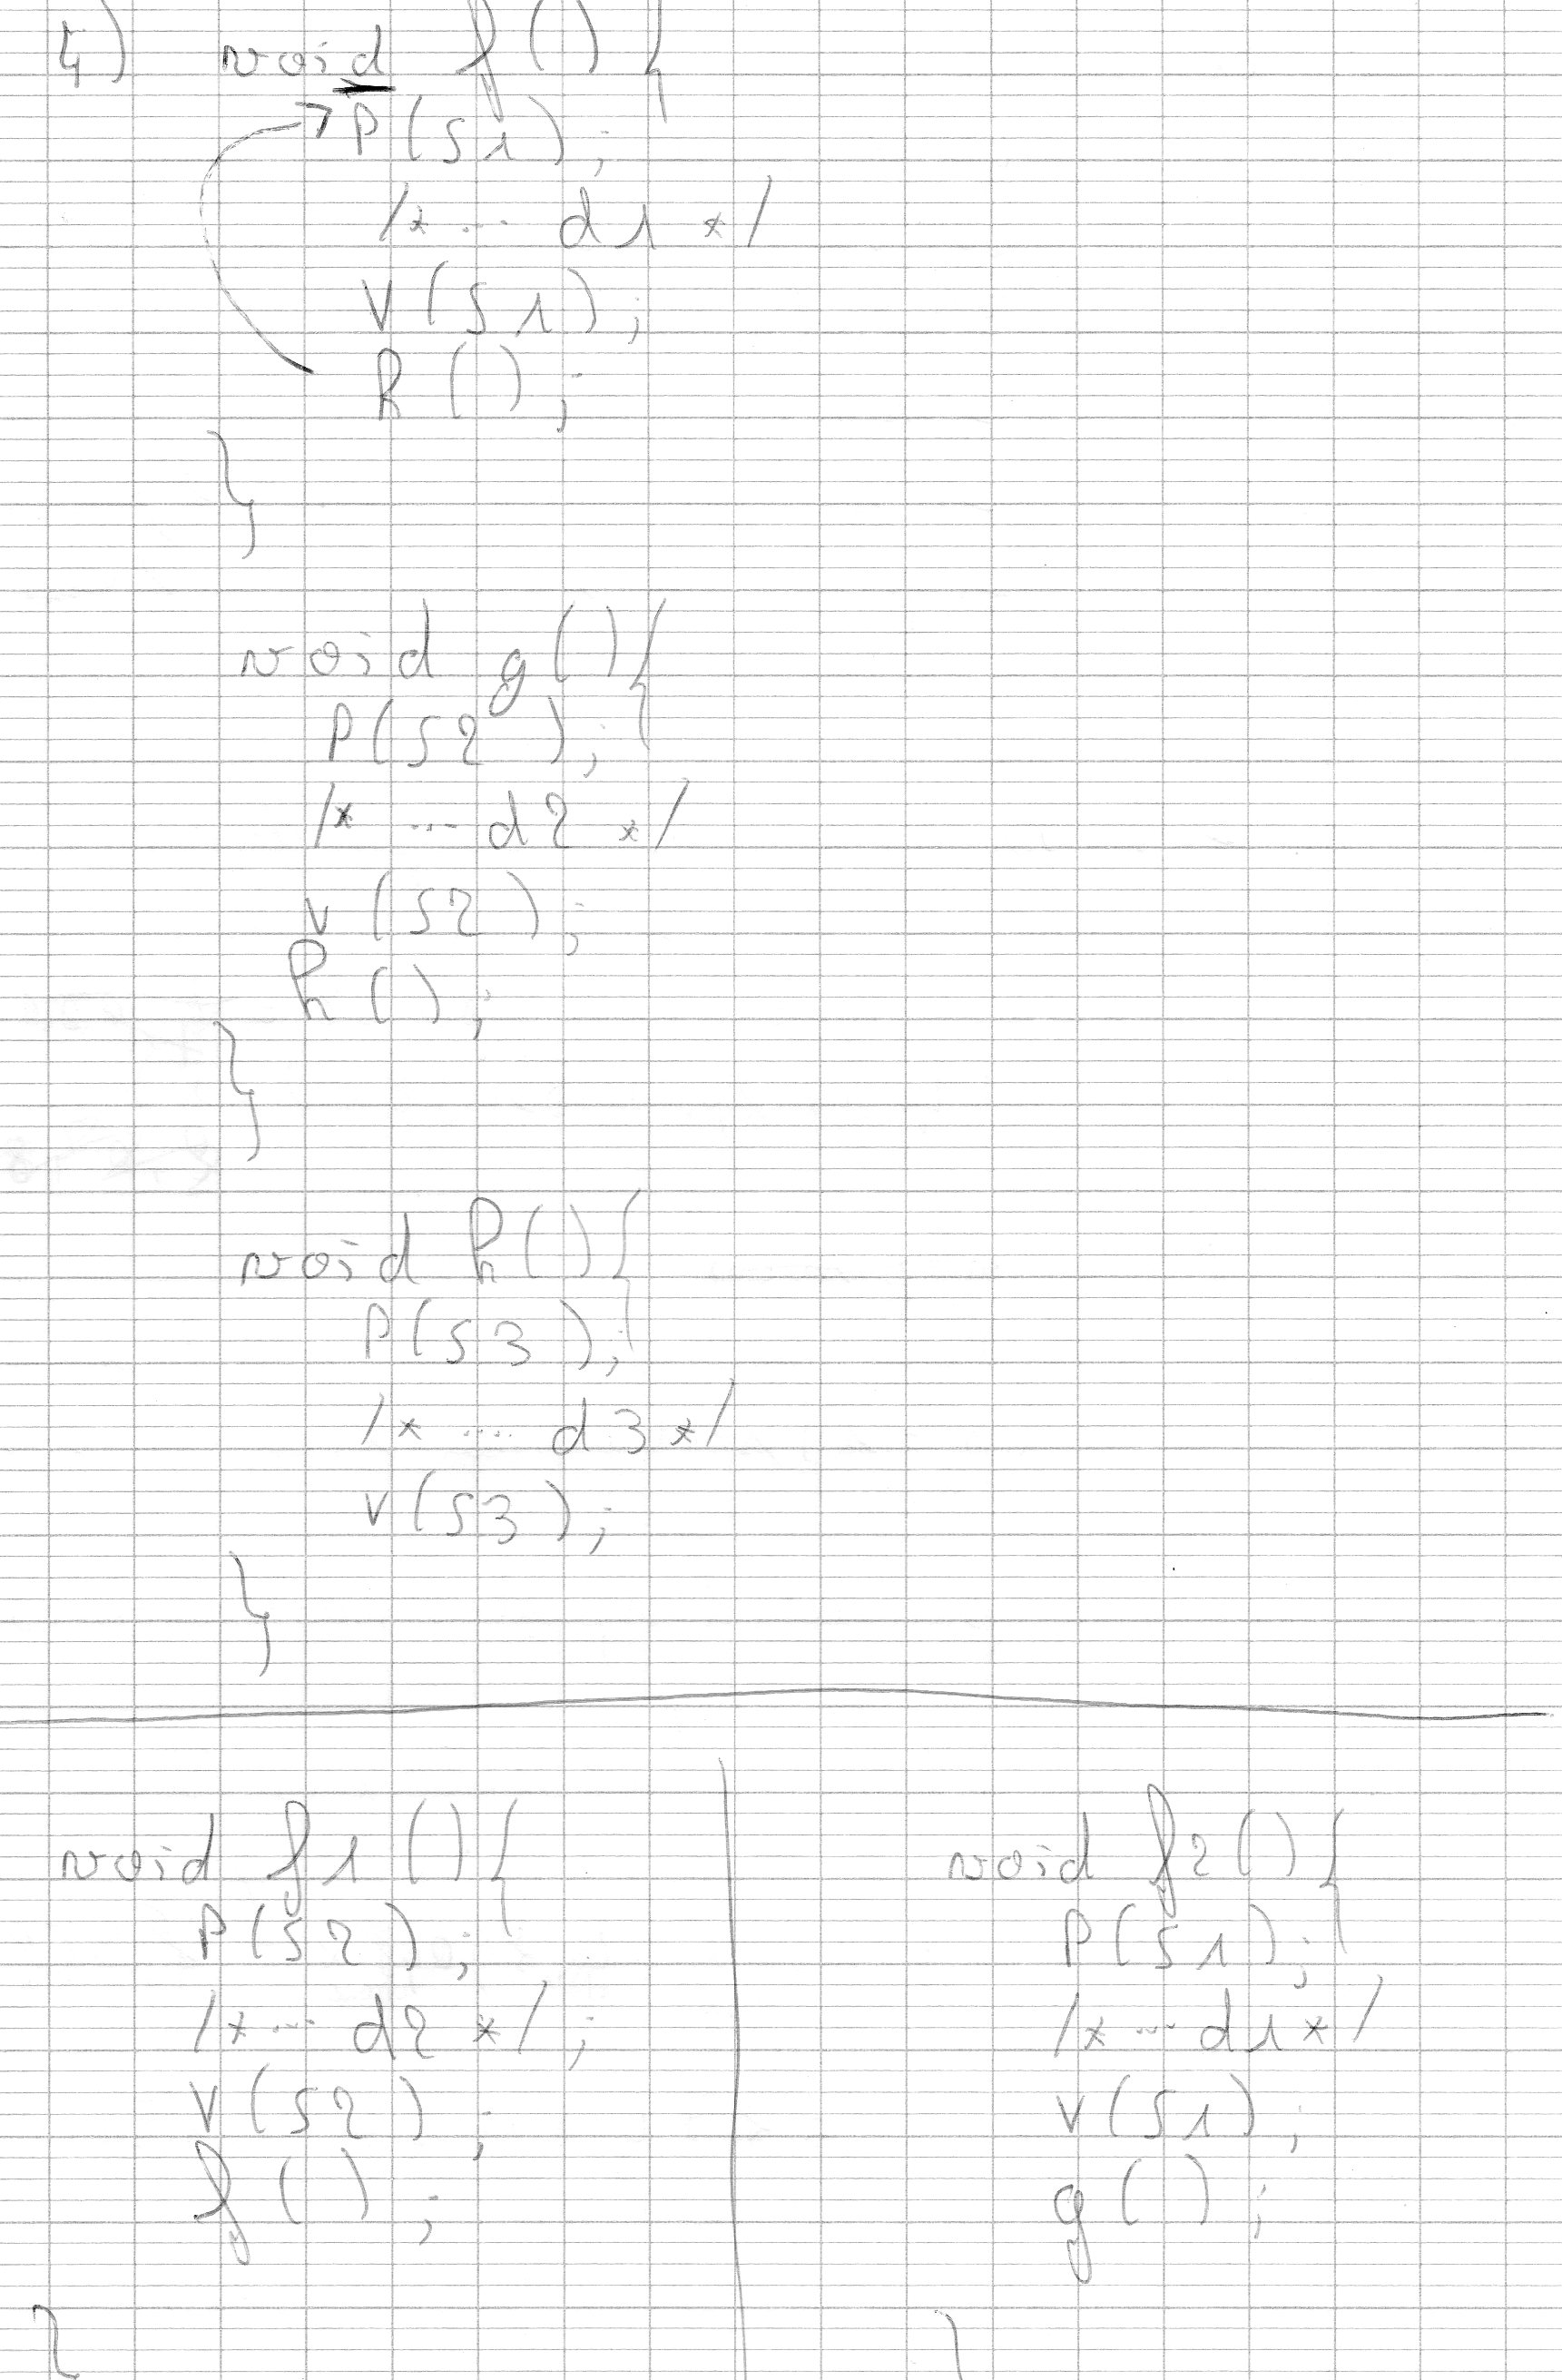 4) void f() {
P(S1);
/* ... d1 */
V(S1);
h();
}
void g(){
P(S2);
/* ... d2 */
V(S2);
h();
}
void h(){
P(S3);
/* .... d3 */
V(S3);
}
void f1(){
P(S2);
/* ... d2 */;
V(S2);
f();
}
void f2(){
P(S1);
/* ... d1 */
V(S1);
g();
}